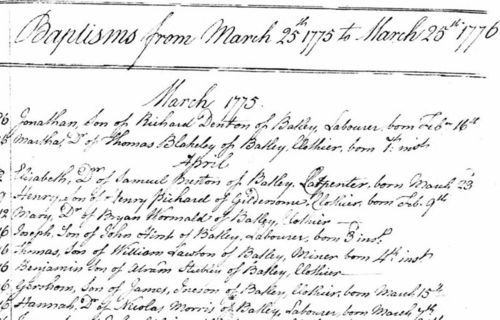 Baptisms from March 25th 1775 to March 25th 1776
March 1775.
26 Jonathan, Son of Richard Denton of Batley, Labourer, born Feb 16th
Martha, Dr of Thomas Blakeley of Batley, Clothier, born 1: inst
April
Elizabeth, Dr of Samuel Burton of Batley, Carpenter, born March 23
Henry, Son of Henry Richard of Gildersome, Clothier, born Feb: 9th
Mary, Dr of Bryan Wormald of Batley, Clothier
16 Joseph, Son of John Flint of Batley, Labourer, born 3 inst
16 Thomas, Son of William Lawson of Batley, Miner born 4th inst
16 Benjamin Son of Abram of Batley, Clothier
Gershom, Son of James, of Batley, Clothier, born March 15th
Hannah, Dr of Nicolas Morris of Batley, Labourer, born March 7th